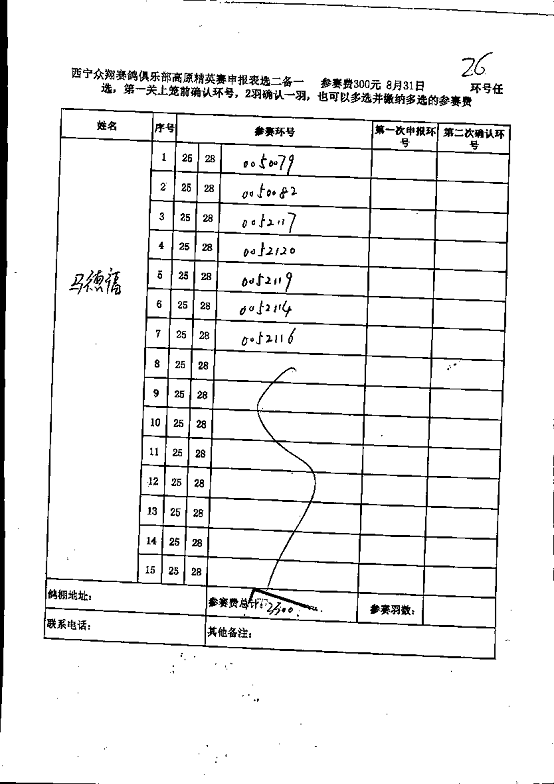 26
西宁众翔赛鸽俱乐部高原精英赛申报表选二备一 参赛费300元 8月31日 环号任
选，第一关上笼前确认环号，2羽确认一羽，也可以多选并缴纳多选的参赛费
姓名 序号 参赛环号 第一次申报环号 第二次确认环号
1 25 28 0050079
2 25 28 0050082
3 25 28 0052117
4 25 28 0052120
马德福 5 25 28 0052119
6 25 28 0052114
7 25 28 0052116
8 25 28
9 25 28
10 25 28
11 25 28
12 25 28
13 25 28
14 25 28
15 25 28
鸽棚地址： 参赛费总计： 参赛羽数：
联系电话： 其他备注：